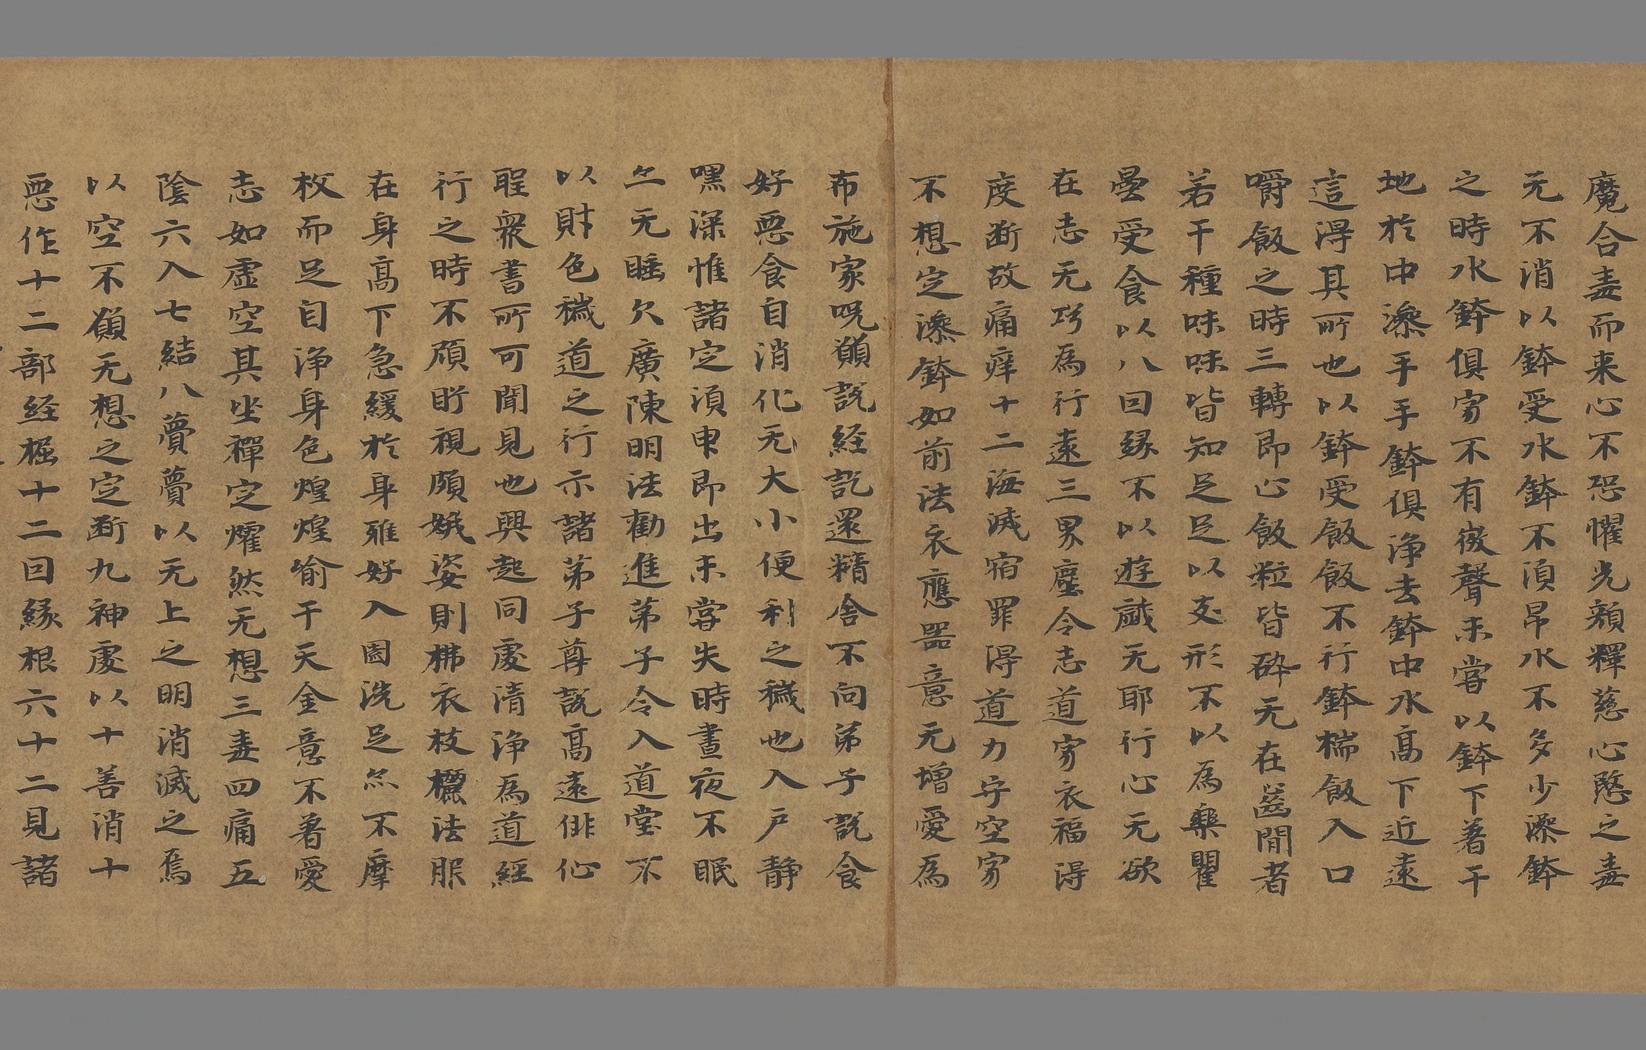 魔合毒而来心不恐懼光顏釋慈心愍之毒
无不消以鉢受水鉢不湏昂水不多少澡鉢
之時水鉢俱寂不有微聲未嘗以鉢下著于
地於中澡手手鉢俱淨去鉢中水高下近遠
這得其所也以鉢受飯飯不行鉢揣飯入口
嚼飯之時三轉即止飯粒皆碎无在齒間者
若干種味味皆知足足以支形不以為樂瞿
曇受食以八因緣不以遊戲无耶行心无欲
在志无巧為行遠三界塵令志道寂衣福得
度断故痛痒十二海滅宿罪得道力守空寂
不想定澡鉢如前法衣應器意无增愛為
布施家呪願說経訖還精舍不向弟子說食
好惡食自消化无大小便利之穢也入户静
嘿深惟諸定湏申即出未嘗失時晝夜不眠
亦无睡欠廣陳明法勸進弟子令入道堂不
以財色穢道之行示諸弟子尊說高遠俳
聖衆書所可聞見也興起同處清淨為道経
行之時不頋眄視頗姿則梻衣枝欐法服
在身高下急緩於身雅好入園洗足亦不摩
杖而足自淨身色煌煌喻干天金意不著愛
志如虛空其坐禪定爟然无想三毒四痛五
陰六入七結八夢夢以无上之明消滅之焉
以空不願无想之定断九神處以十善消十
惡作十二部経掘十二因緣根六十二見諸